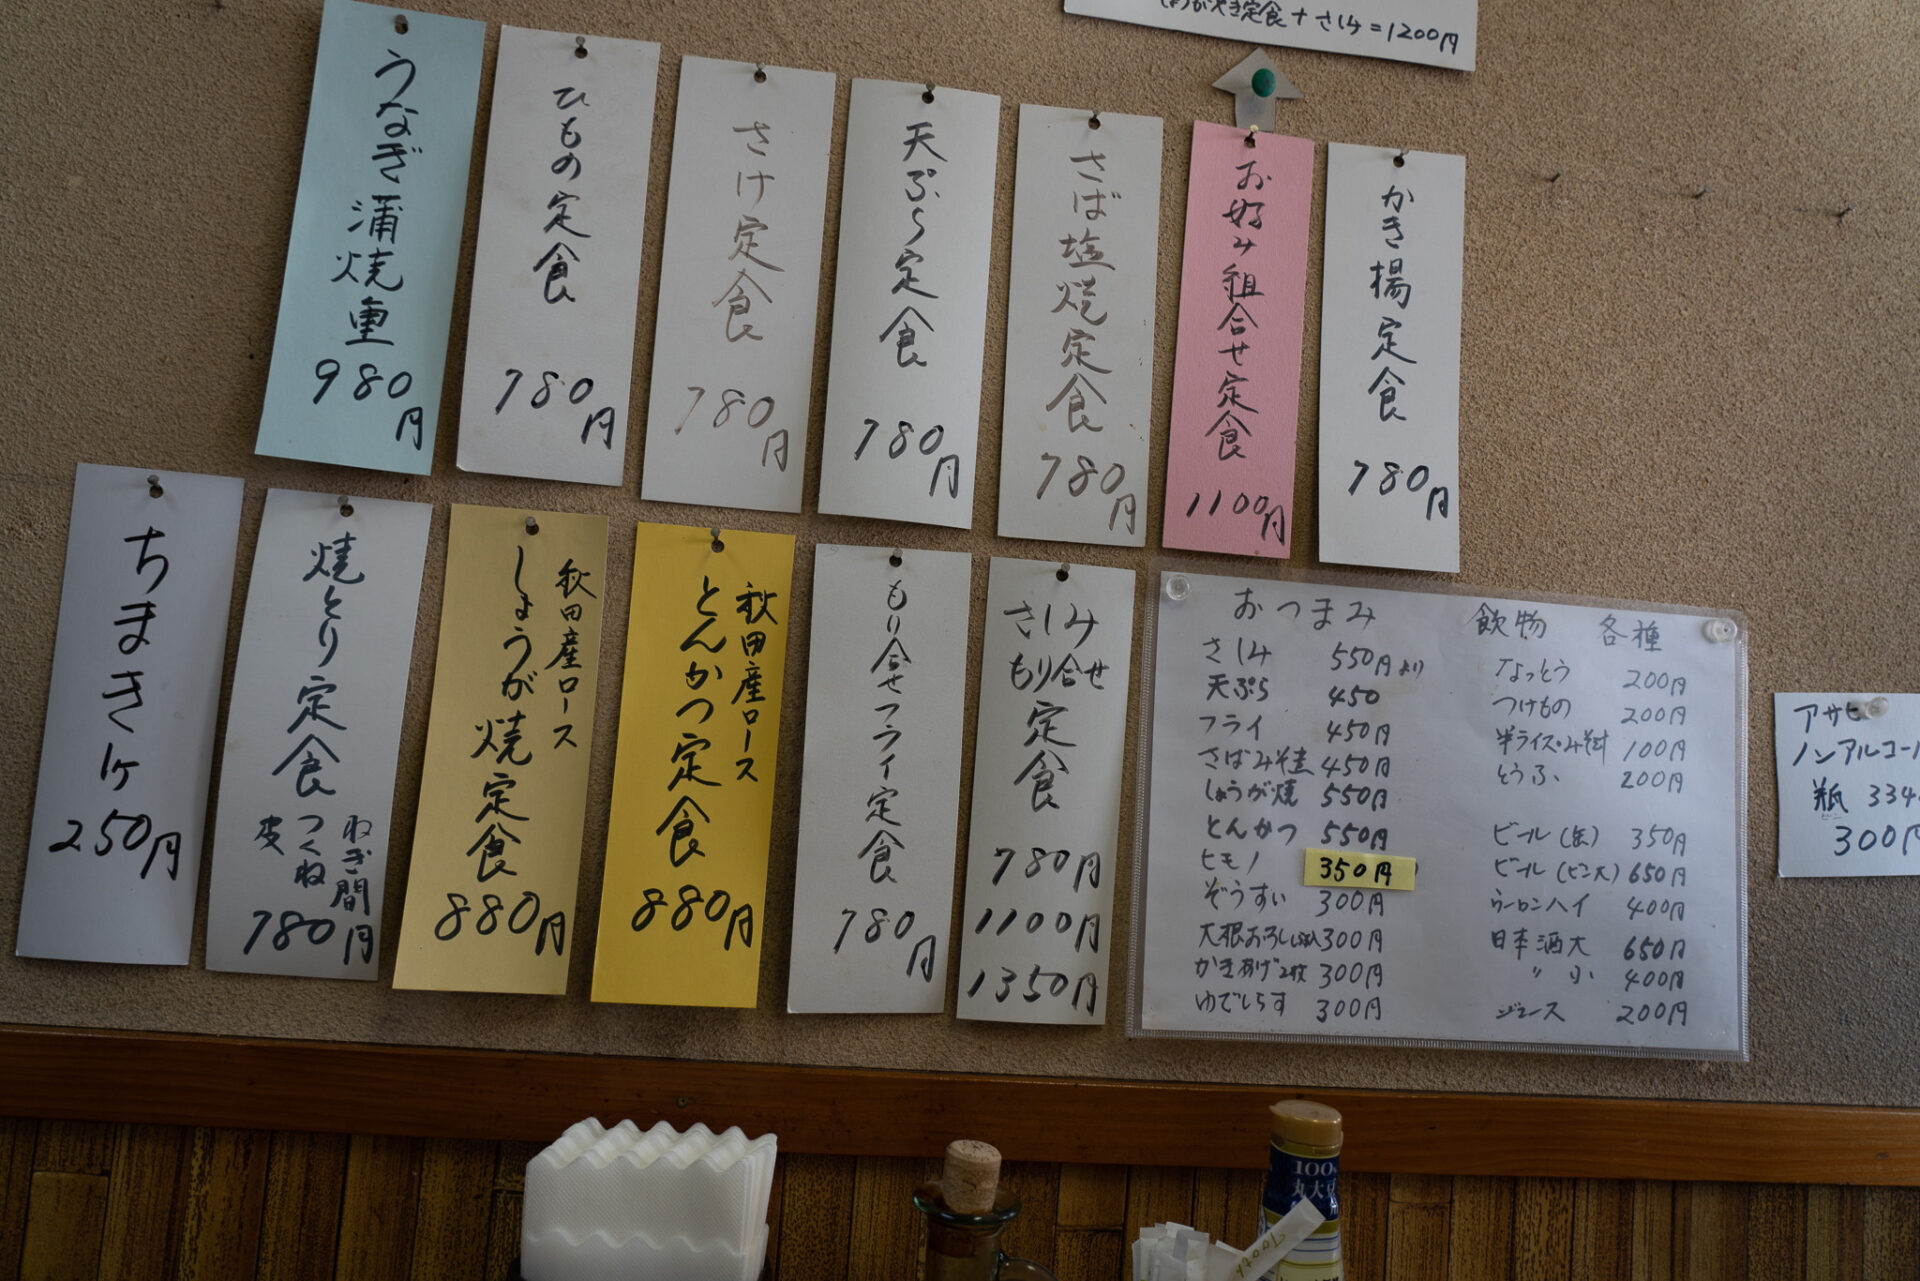 しょうがやき定食+さしみ=1200円
うなぎ蒲焼重
980円
ひもの定食
780円
さけ定食
780円
天ぷら定食
780円
さば塩焼定食
780円
お好み組合せ定食
1100円
かき揚定食
780円
ちまき1ヶ
250円
焼とり定食
ねぎ間
つくね
皮
780円
秋田産ロース
しょうが焼定食
880円
秋田産ロース
とんかつ定食
880円
もり合せフライ定食
780円
さしみ
もり合せ
定食
780円
1100円
1350円
おつまみ
さしみ 550円より
天ぷら 450
フライ 450円
さばみそ煮 450円
しょうが焼 550円
とんかつ 550円
ヒモノ 350円
ぞうすい 300円
大根おろししらす入 300円
かきあげ2枚 300円
ゆでしらす 300円
飲物 各種
なっとう 200円
つけもの 200円
半ライス・みそ汁 100円
とうふ 200円
ビール(缶) 350円
ビール(ビン大) 650円
ウーロンハイ 400円
日本酒大 650円
〃 小 400円
ジュース 200円
アサヒ
ノンアルコール
瓶 334
ビン
300円
100%
丸大豆
Tooth